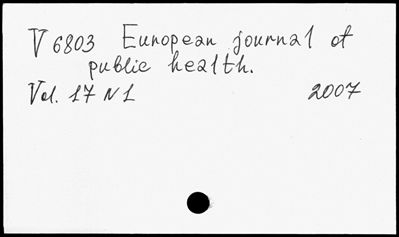 V 6803 European journal of
public health.
Vol. 17 N 1 2007